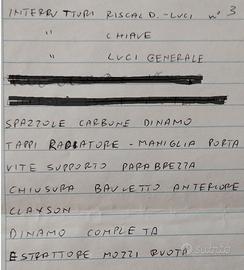 INTERRUTTORI RISCALD.-LUCI n° 3
" CHIAVE
" LUCI GENERALE
SPAZZOLE CARBONE DINAMO
TAPPI RADIATORE - MANIGLIA PORTA
VITE SUPPORTO PARABREZZA
CHIUSURA BAULETTO ANTERIORE
CLAXSON
DINAMO COMPLETA
ESTRATTORE MOZZI RUOTA
subito